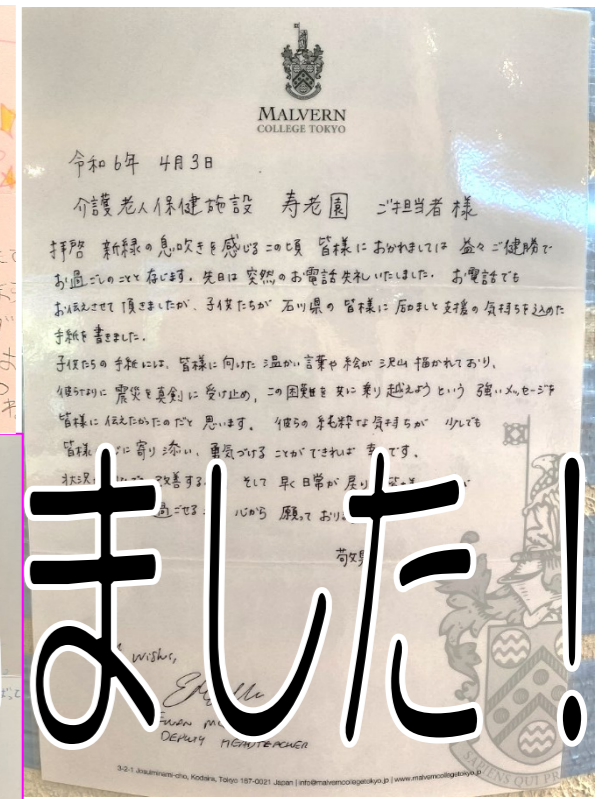 MALVERN
COLLEGE TOKYO
令和6年 4月3日
介護老人保健施設 寿老園 ご担当者様
拝啓 新緑の息吹きを感じるこの頃 皆様におかれましては 益々ご健勝で
お過ごしのことと存じます。先日は 突然のお電話失礼いたしました。 お電話でも
お伝えさせて頂きましたが、子供たちが 石川県の 皆様に 励ましと支援の 気持ちを込めた
手紙を書きました。
子供たちの手紙には、皆様に向けた 温かい言葉や絵が 沢山 描かれており、
彼らなりに 震災を真剣に受け止め、この困難を共に乗り越えようという 強いメッセージを
皆様に伝えたかったのだと思います。 彼らの純粋な気持ちが 少しでも
皆様 に寄り添い、勇気づけることができれば 幸 です。
状況 改善する そして 早く日常が戻り
過ごせる 心から 願っており
敬具
ました!
Wishes,
DEPUTY HEADTEACHER
3-2-1 Josuiminami-cho, Kodaira, Tokyo 187-0021 Japan | info@malverncollegetokyo.jp | www.malverncollegetokyo.jp
SAPIENS QUI PR